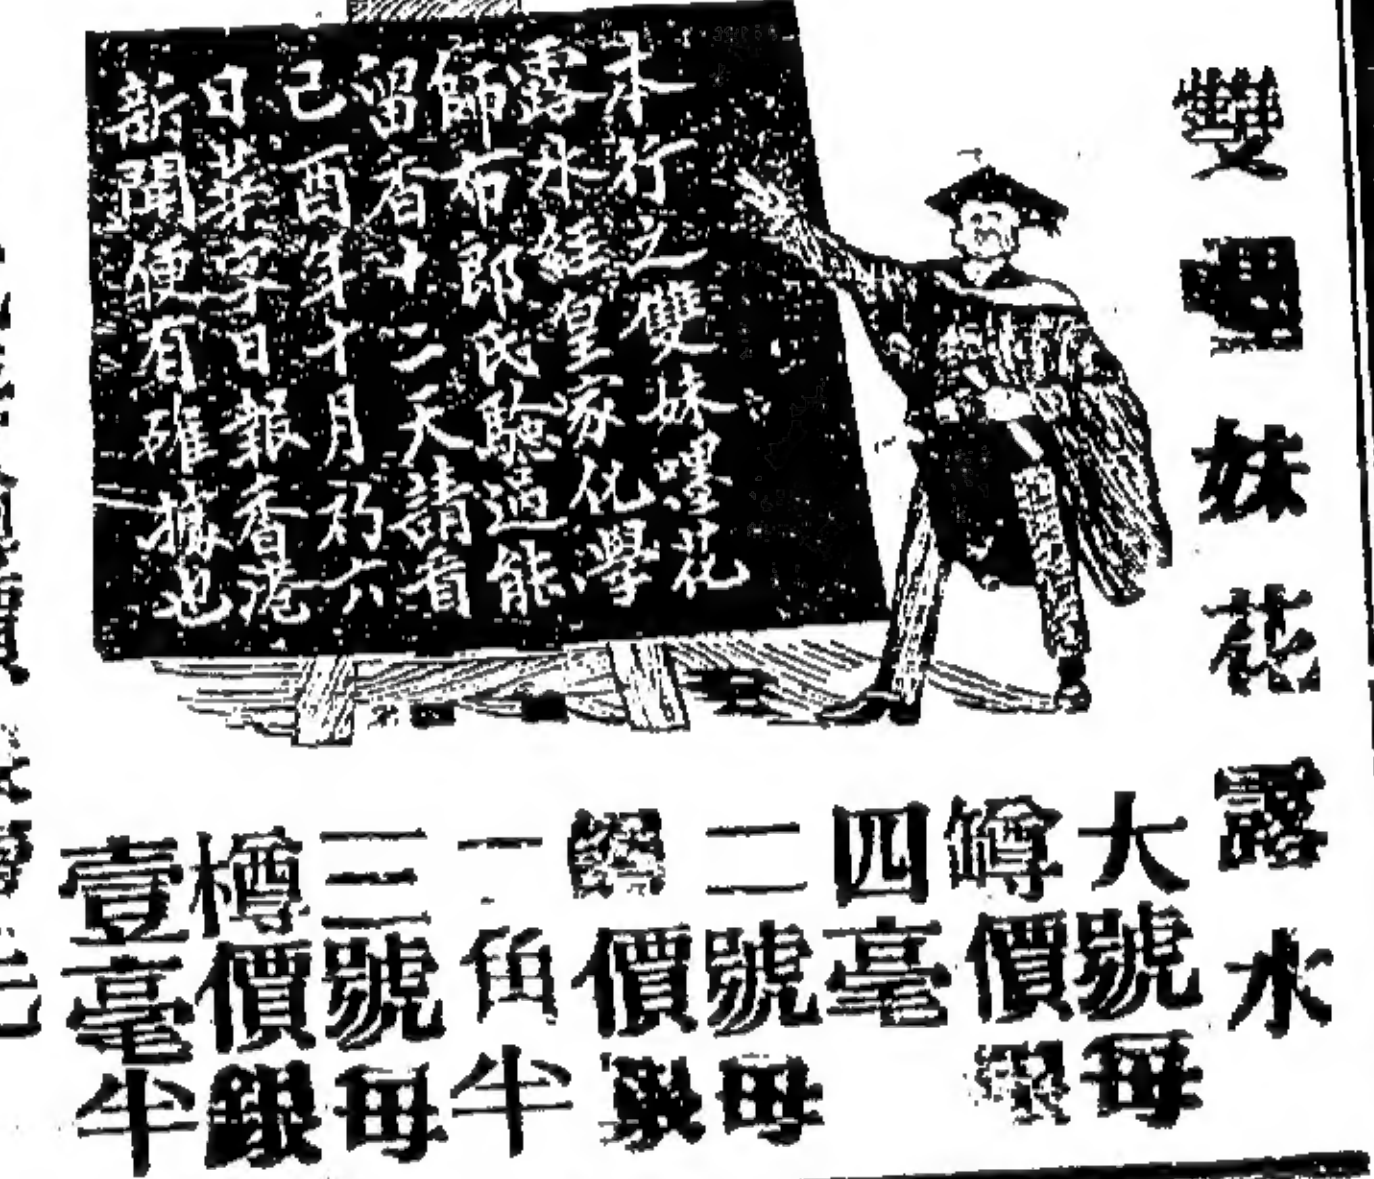 雙妹花露水
本行之雙妹嚜花
露水經皇家化學
師布郎氏驗過能
留香十二天請看
己酉年十月初六
日華字日報香港
新聞便有確據也
大號每
罇價銀
四毫
二號每
罇價銀
一角半
三號每
樽價銀
壹毫半